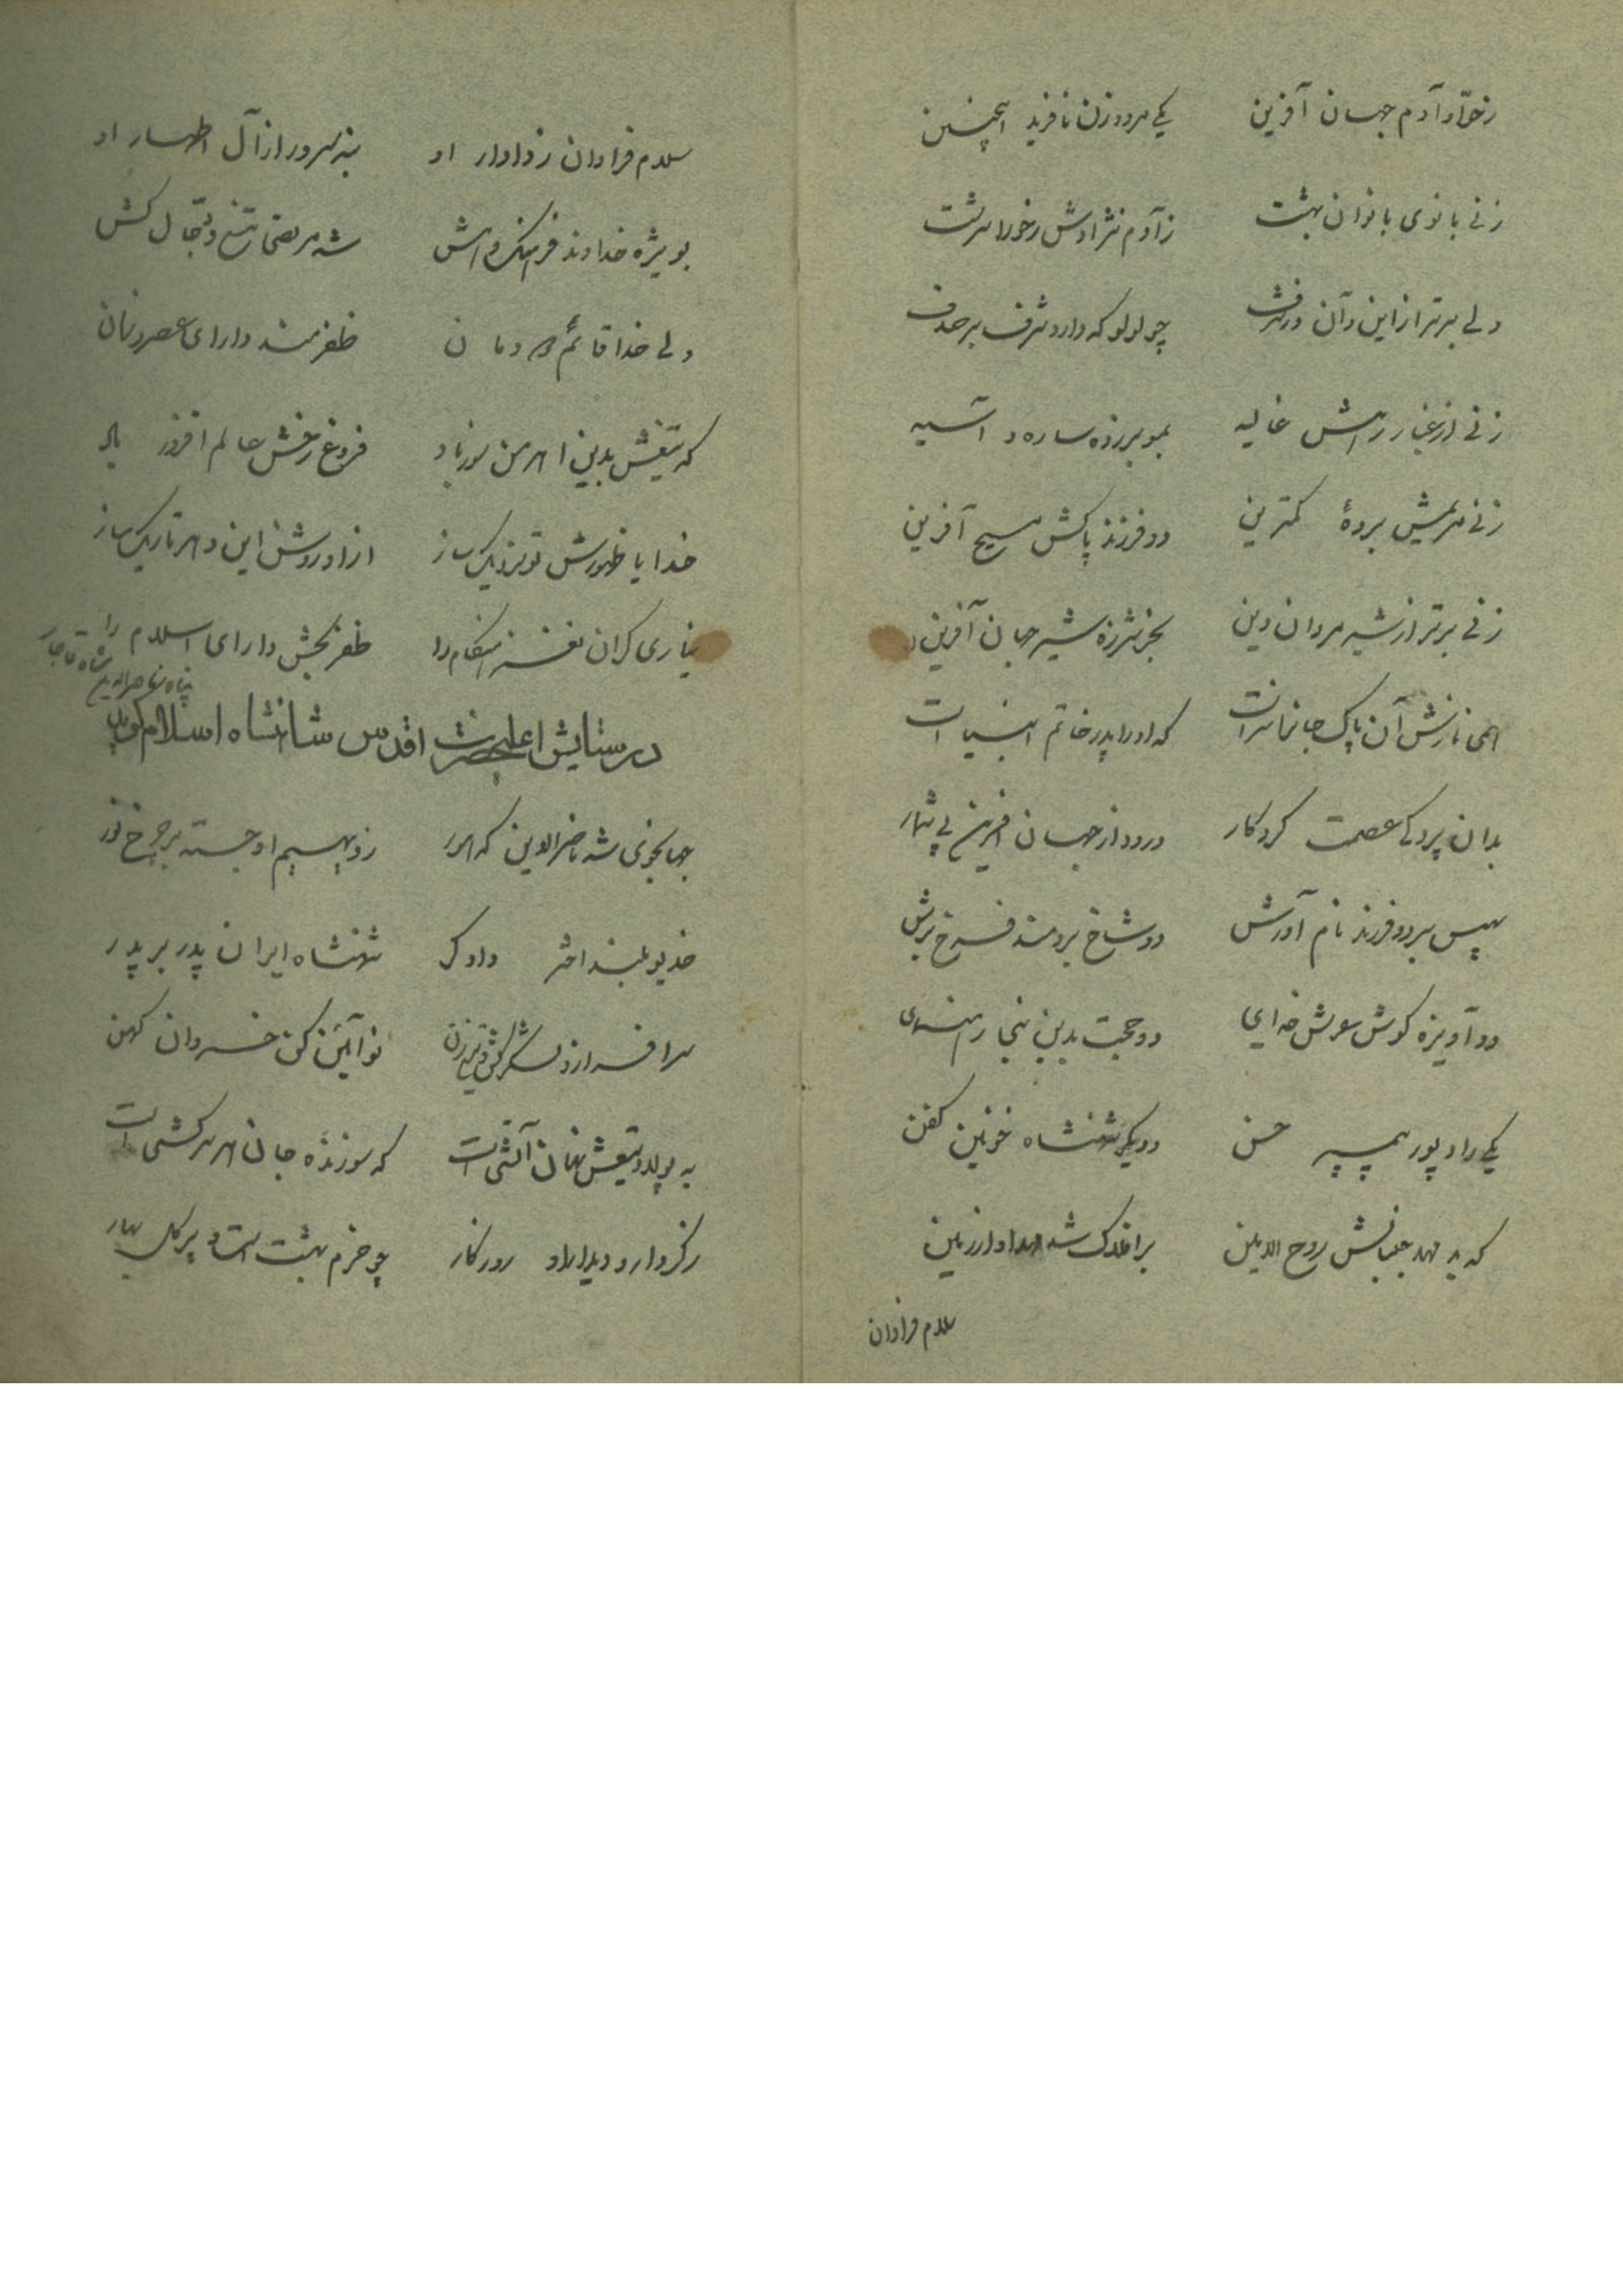 ز حوّا و آدم جهان آفرین یکی مرد و زن نافرید اینچنین
زنی بانوی بانوان بهشت ز آدم نژادش ز حورا سرشت
ولی برتر از این و آن در شرف چو لولو که دارد شرف بر صدف
زنی از غبار رهش غالیه بمو بر زده ساره و آسیه
زنی مریمش بردهٔ کمترین دو فرزند پاکش مسیح آفرین
زنی برتر از شیر مردان دین بجز شرزه شیر جهان آفرین
همی نازش آن پاک جانرا سزاست که او را پدر خاتم انبیاست
بدان پردگی عصمت کردکار درود از جهان آفرین بی شمار
سپس بر دو فرزند نام آورش دو شاخ برومند فرخ برش
دو آویزه کوش عرش خدای دو حجت بدین بنجا رهنمای
یکی راد پور پیمبر حسن دویکر شهنشاه خونین کفن
که بد مهد جنبانش روح الامین بر افلاک شد از زمین
سلام فراوان
سلام فراوان ز دادار او بنه سرور از آل اطهار او
بویژه خداوند فرهنک و هش شه مرتضی تیغ دجّال کش
ولی خدا قائم دودمان ظفرمند دارای عصر و زمان
که تیغش بدین اهرمن سوز باد فروغ رخش عالم افروز باد
خدایا ظهورش تو نزدیک ساز از او روشن این دهر تاریک ساز
بیاری کران نغز هنکام را ظفر بخش دارای اسلام را
در ستایش اعلیحضرت اقدس شاهنشاه اسلام
پناه ناصرالدین شاه قاجار گوید
جهانجوی شه ناصرالدین که هور ز دیهیم او جسته بر چرخ نور
خدیو بلند اختر دادگر شهنشاه ایران پدر بر پدر
سرافراز و لشکر کش و تیغ زن نو آئین کن خسروان کهن
به پولاد تیغش نهان آتشی است که سوزندهٔ جان هر سرکشی است
ز کردار و دیدار او روزکار چو خرم بهشت است و پر کل بهار